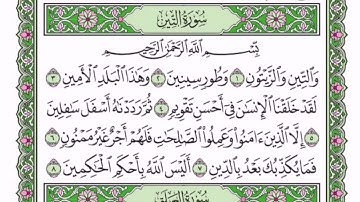 سُورَةُ التِّينِ
بِسْمِ اللَّهِ الرَّحْمَٰنِ الرَّحِيمِ
وَالتِّينِ وَالزَّيْتُونِ ١ وَطُورِ سِينِينَ ٢ وَهَٰذَا الْبَلَدِ الْأَمِينِ ٣
لَقَدْ خَلَقْنَا الْإِنسَانَ فِي أَحْسَنِ تَقْوِيمٍ ٤ ثُمَّ رَدَدْنَاهُ أَسْفَلَ سَافِلِينَ
٥ إِلَّا الَّذِينَ ءَامَنُوا وَعَمِلُوا الصَّالِحَاتِ فَلَهُمْ أَجْرٌ غَيْرُ مَمْنُونٍ ٦
فَمَا يُكَذِّبُكَ بَعْدُ بِالدِّينِ ٧ أَلَيْسَ اللَّهُ بِأَحْكَمِ الْحَاكِمِينَ ٨
سُورَةُ الْعَلَقِ